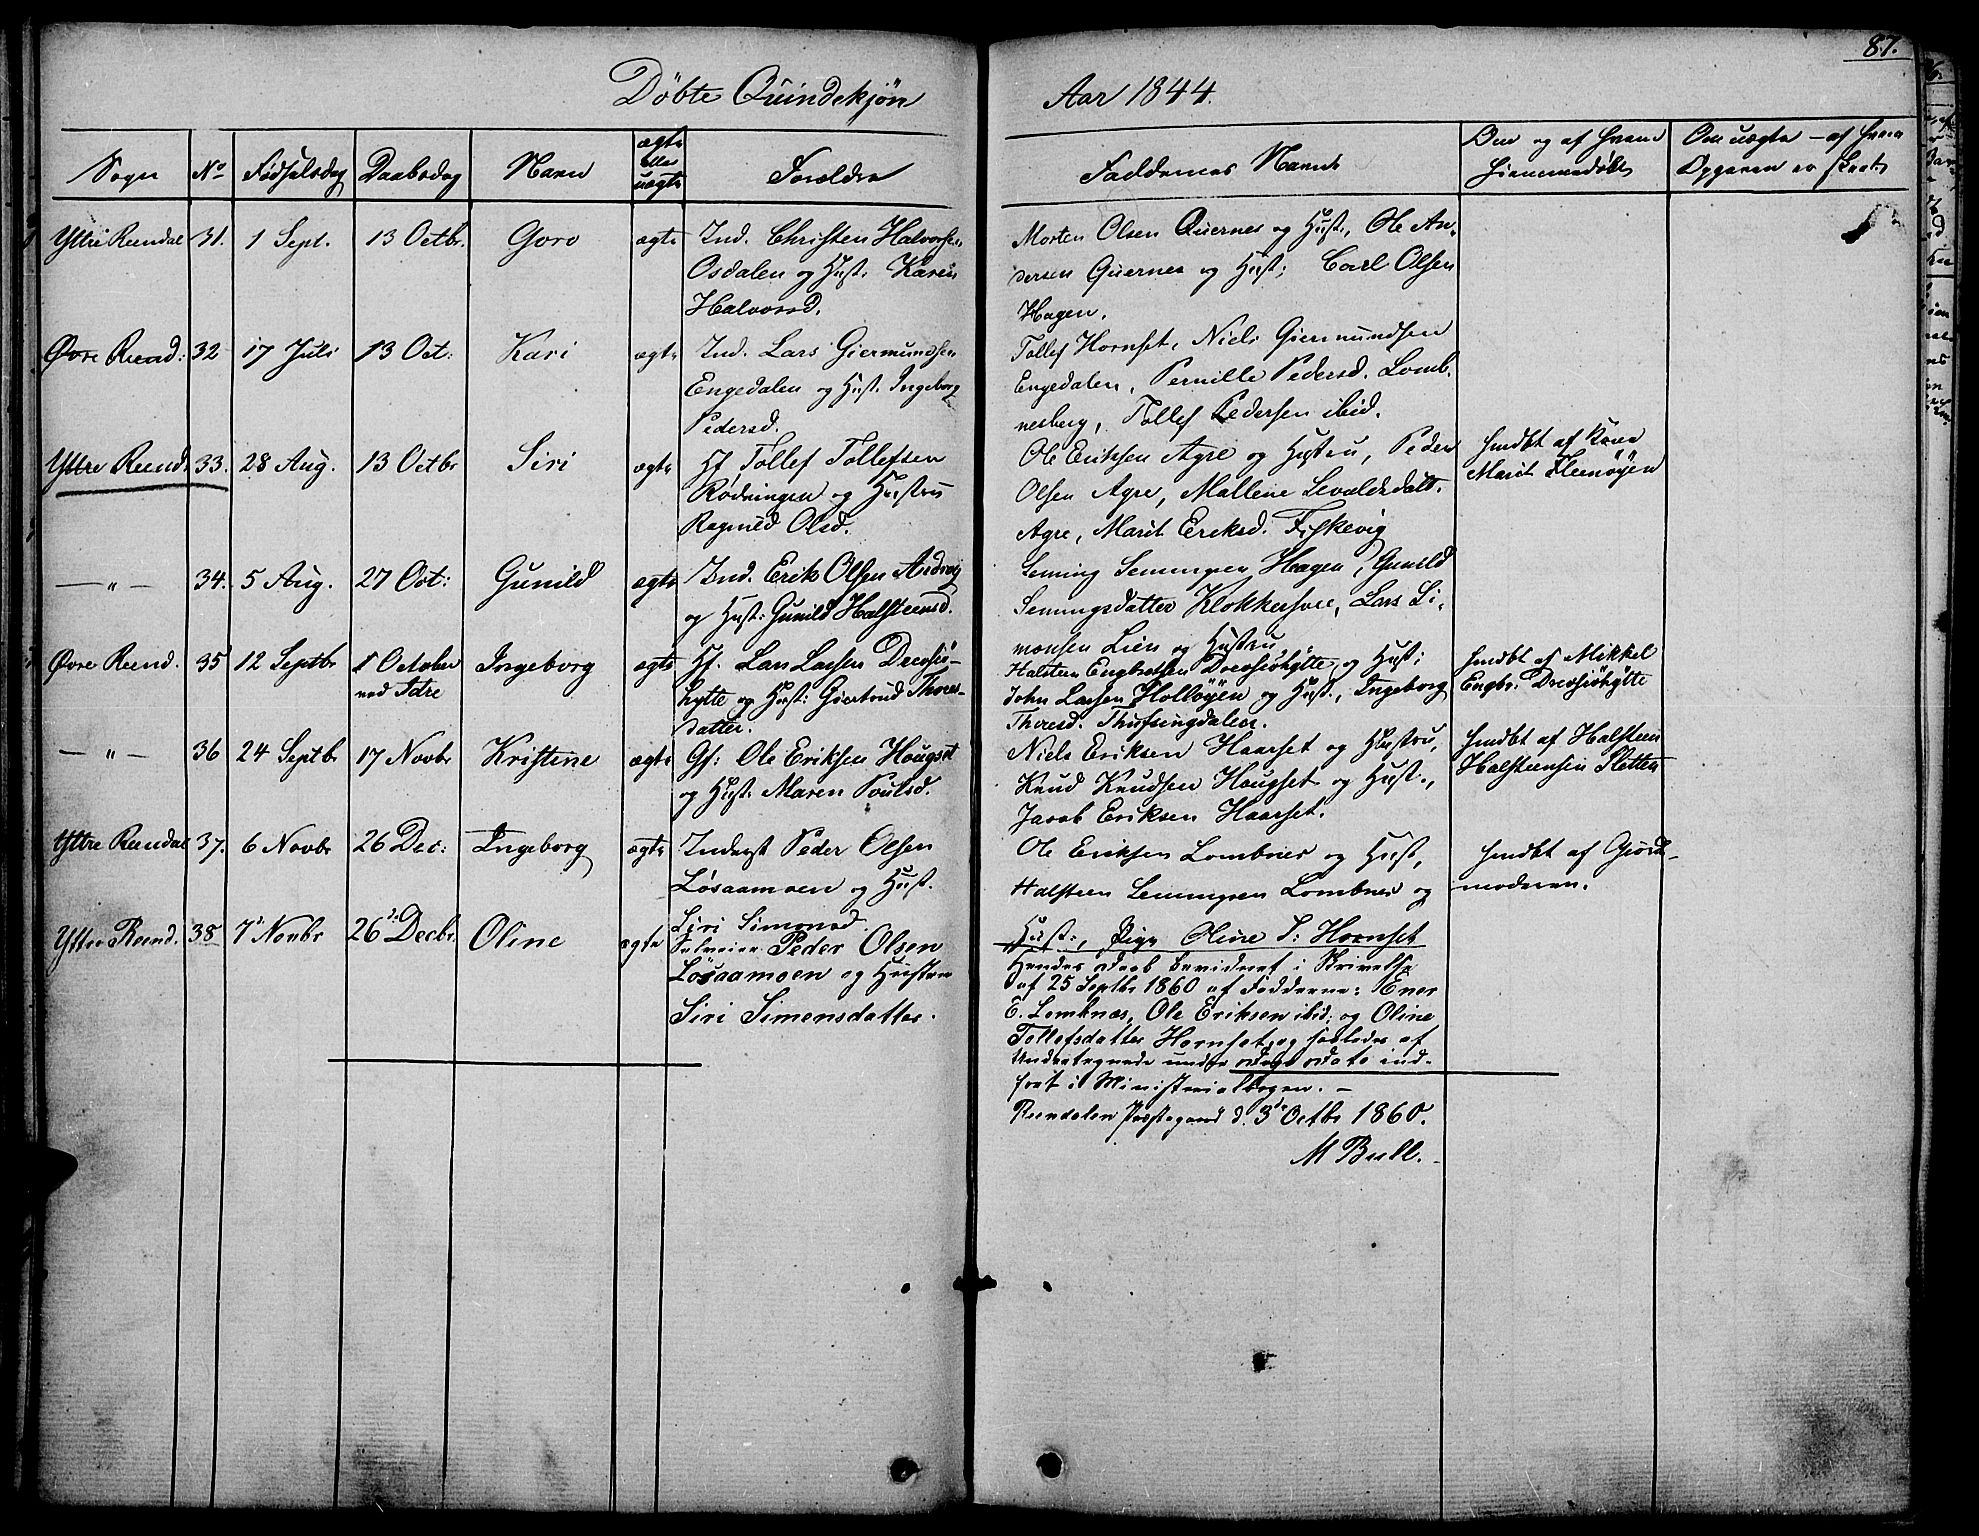 87.
Döbte Quindekjön Aar 1844.
Sogn No Fødselsdag Daabsdag Navn ægte eller uægte Forældre Faddernes Navne Om og af hvem Hjemmedøbt Om uægte - af hvem Opgaven er skeet
Yttre Reendal 31. 1 Sept. 13 Octbr. Goro ægte Ind. Christen Halvorsen
Osdalen og Hust. Karen
Halvorsd.
Morten Olsen Quernes og Hust., Ole An-
dersen Quernes og Hust; Carl Olsen
Hagen.
Øvre Reend: 32 17 Juli 13 Oct: Kari ægte Ind. Lars Giermundsen
Engedalen og Hust. Ingeborg
Pedersd.
Tollef Hornset, Niels Giermundsen
Engedalen, Pernille Pedersd. Lomb-
nesberg, Tollef Pedersen ibid.
Yttre Reend. 33. 28 Aug. 13 Octbr Siri ægte Hf. Tollef Tollefsen
Rødningen og Hustru
Ragnild Olsd.
Ole Eriksen Agre og Hustru, Peder
Olsen Agre, Mallene Sevaldsdatt.
Agre, Marit Eriksd. Fiskevig
hmdbt af Kone
Marit
— " — 34. 5 Aug. 27 Oct: Gunild ægte Ind. Erik Olsen Andvig
og Hust: Gunild Halsteensd.
Semming Semmingsen Hagen, Gunild
Semmingsdatter Klokkersvee, Lars Si-
monsen Lien og Hustru
Øvre Reend. 35 12 Septbr October
ved Idre Ingeborg ægte Hf. Lars Larsen Drevsiö-
hytte og Hust: Giertrud Thores-
datter.
Halsteen Engbretsen Drevsiöhytte og Hust;
John Larsen Holløyen og Hust., Ingeborg
Thoresd. Thufsingdalen.
hmdbt af Mikkel
Engbr. Drevsiöhytte
— " — 36 24 Septbr 17 Novbr Kristine ægte Gf: Ole Eriksen Hougset
og Hust: Maren Poulsd.
Niels Eriksen Haarset og Hustru,
Knud Knudsen Hougset og Hust.,
Jacob Eriksen Haarset.
hmdbt af Halsteen
Halsteensen Sletten
Yttre Reendal 37. 6 Novbr 26 Dec: Ingeborg ægte Inderst Peder Olsen
Løsaamoen og Hust.
Siri Simonsd.
Ole Eriksen Lombnes og Hust,
Halsteen Semmingsen Lombnes og
Hust., Pige Oline T: Hornset
hmdbt af Giord-
moderen.
Yttre Reend. 38 7de Novbr 26de Decbr. Oline ægte Selveier Peder Olsen
Løsaamoen og Hustru
Siri Simensdatter.
Hendes Daab bevidnet i Skrivelse
af 25 Septbr 1860 af Fadderne: Ener
E. Lombnæs, Ole Eriksen ibid; og Oline
Tollefsdatter Hornset, og saaledes af
Undertegnede under Dags Dato ind-
ført i Ministerialbogen. –
Reendalen Præstegaard d. 3die Octbr 1860.
M Bull.